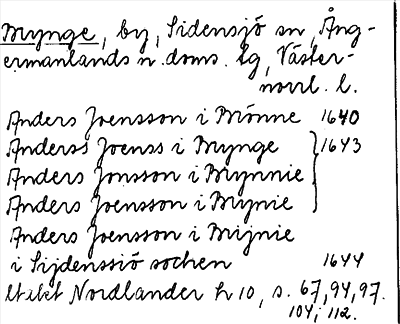 Mynge, by, Sidensjö sn, Ång-
ermanlands n. doms. lg, Väster-
norrl. l.
Anders Joensson i Mönne 1640
Anderss Joenss i Mynge 1643
Anders Jonsson i Mynnie
Anders Joensson i Mynie
Anders Joensson i Mijnie
i Sijdenssiö sochen 1644
Nordlander h 10, s. 67, 94, 97.
104, 112.